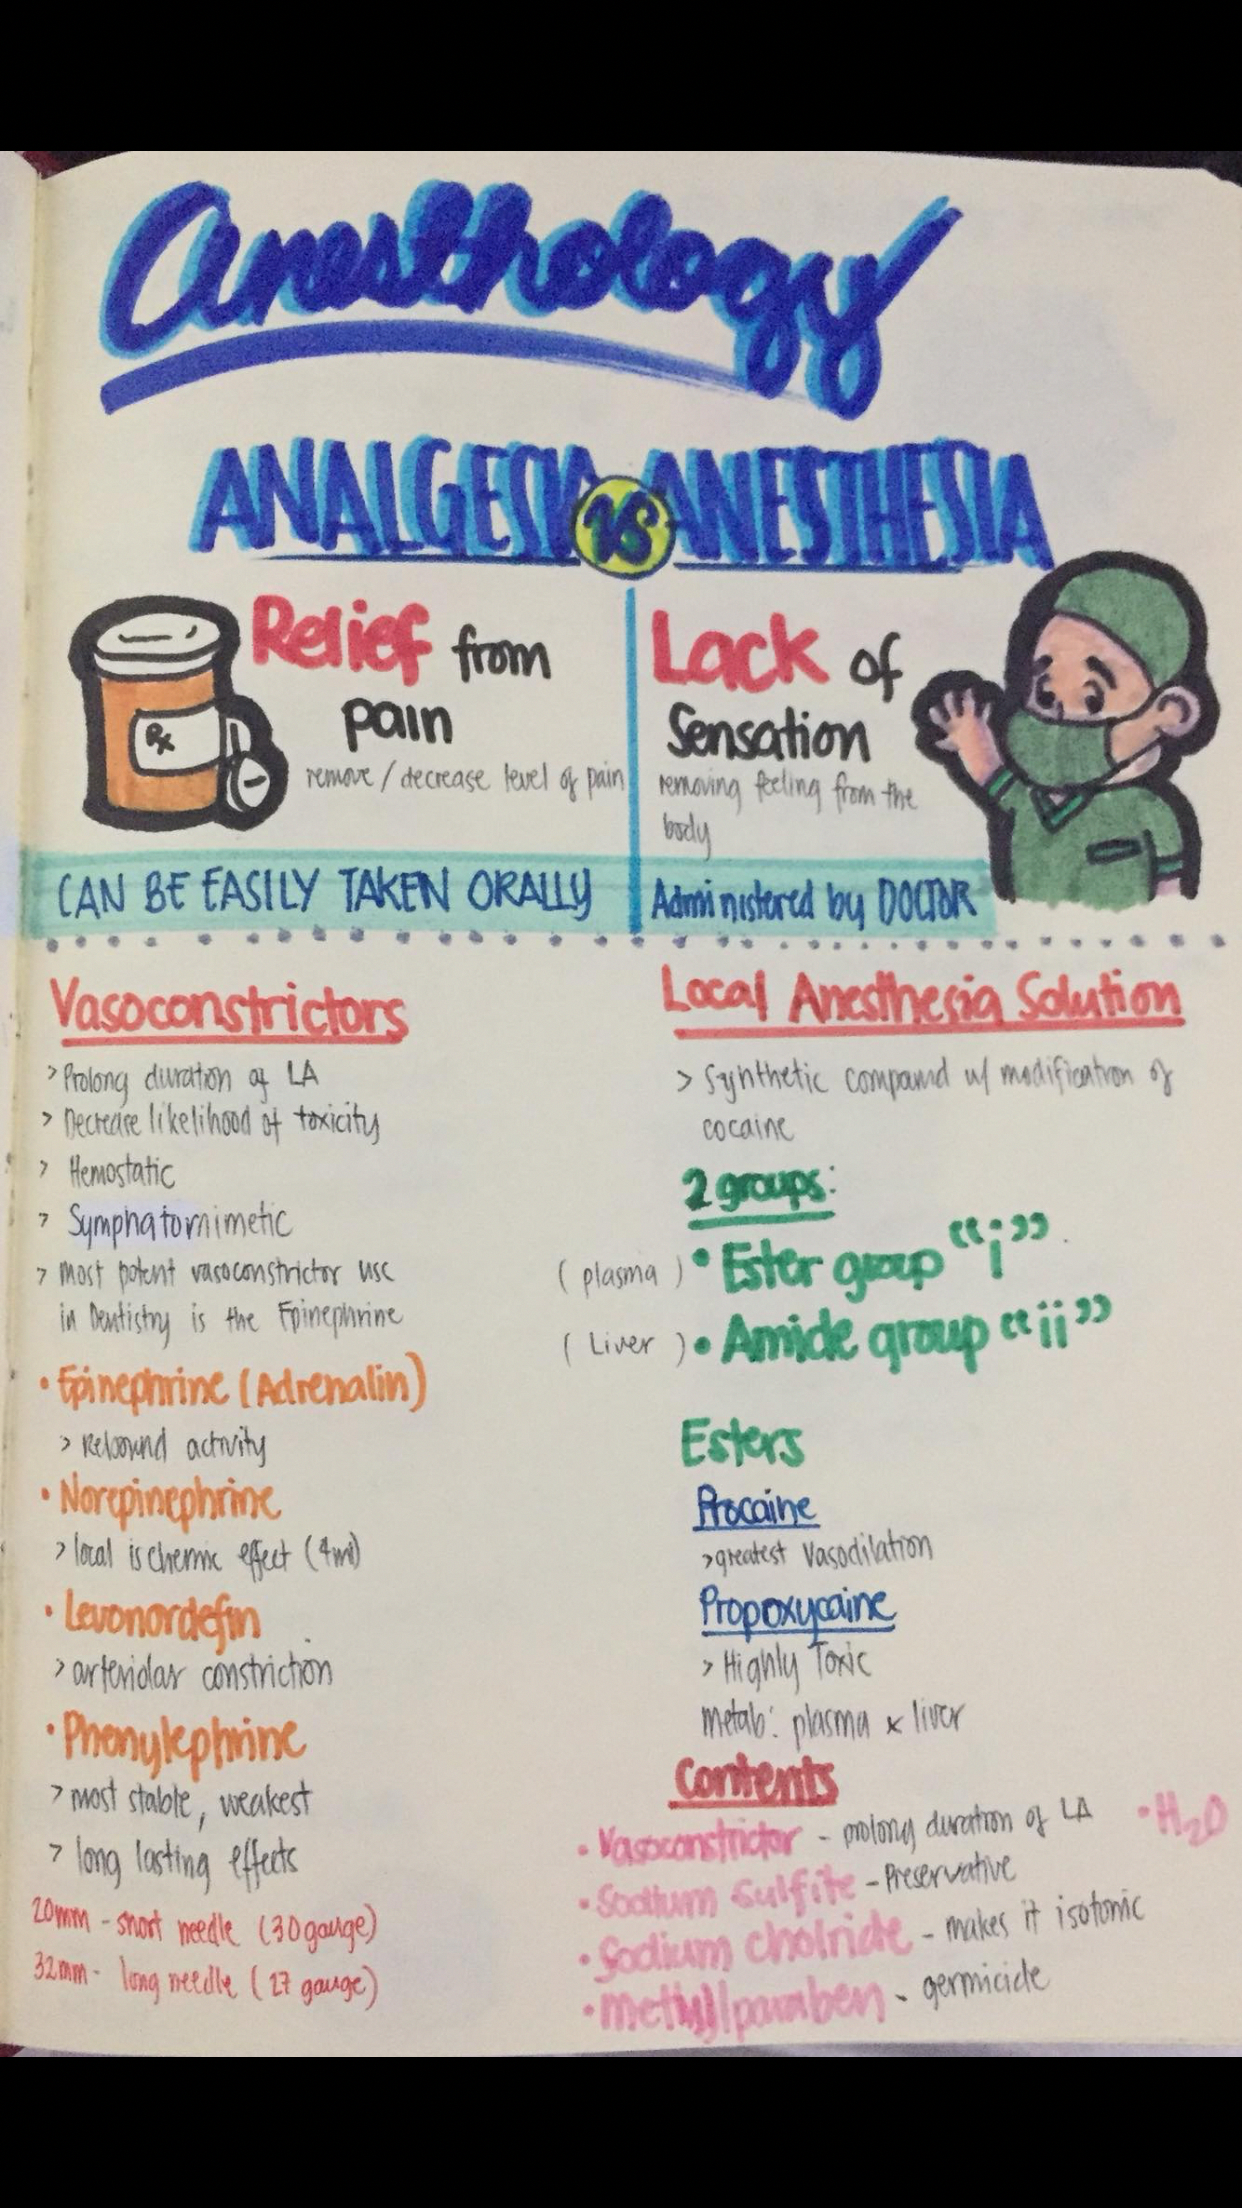 Anesthology
ANALGESIA VS ANESTHESIA
Relief from
pain
remove / decrease level of pain
Rx
CAN BE EASILY TAKEN ORALLY
Lack of
Sensation
removing feeling from the
body
Administered by DOCTOR
Vasoconstrictors
> Prolong duration of LA
> Decrease likelihood of toxicity
> Hemostatic
> Symphatomimetic
> Most potent vasoconstrictor use
in Dentistry is the Epinephrine
• Epinephrine (Adrenalin)
> Rebound activity
• Norepinephrine
> local ischemic effect
• Levonordefin
> arteriolar constriction
• Phenylephrine
> most stable, weakest
> long lasting effects
20mm - short needle (30 gauge)
32mm - long needle (27 gauge)
Local Anesthesia Solution
> Synthetic compound w/ modification of
cocaine
2 groups:
(plasma) • Ester group "i"
(Liver) • Amide group "ii"
Esters
Procaine
> greatest vasodilation
Propoxycaine
> Highly Toxic
metab: plasma x liver
Contents
• Vasoconstrictor - prolong duration of LA • H2O
• Sodium Sulfite - Preservative
• Sodium cholride - makes it isotonic
• Methyl paraben - germicide